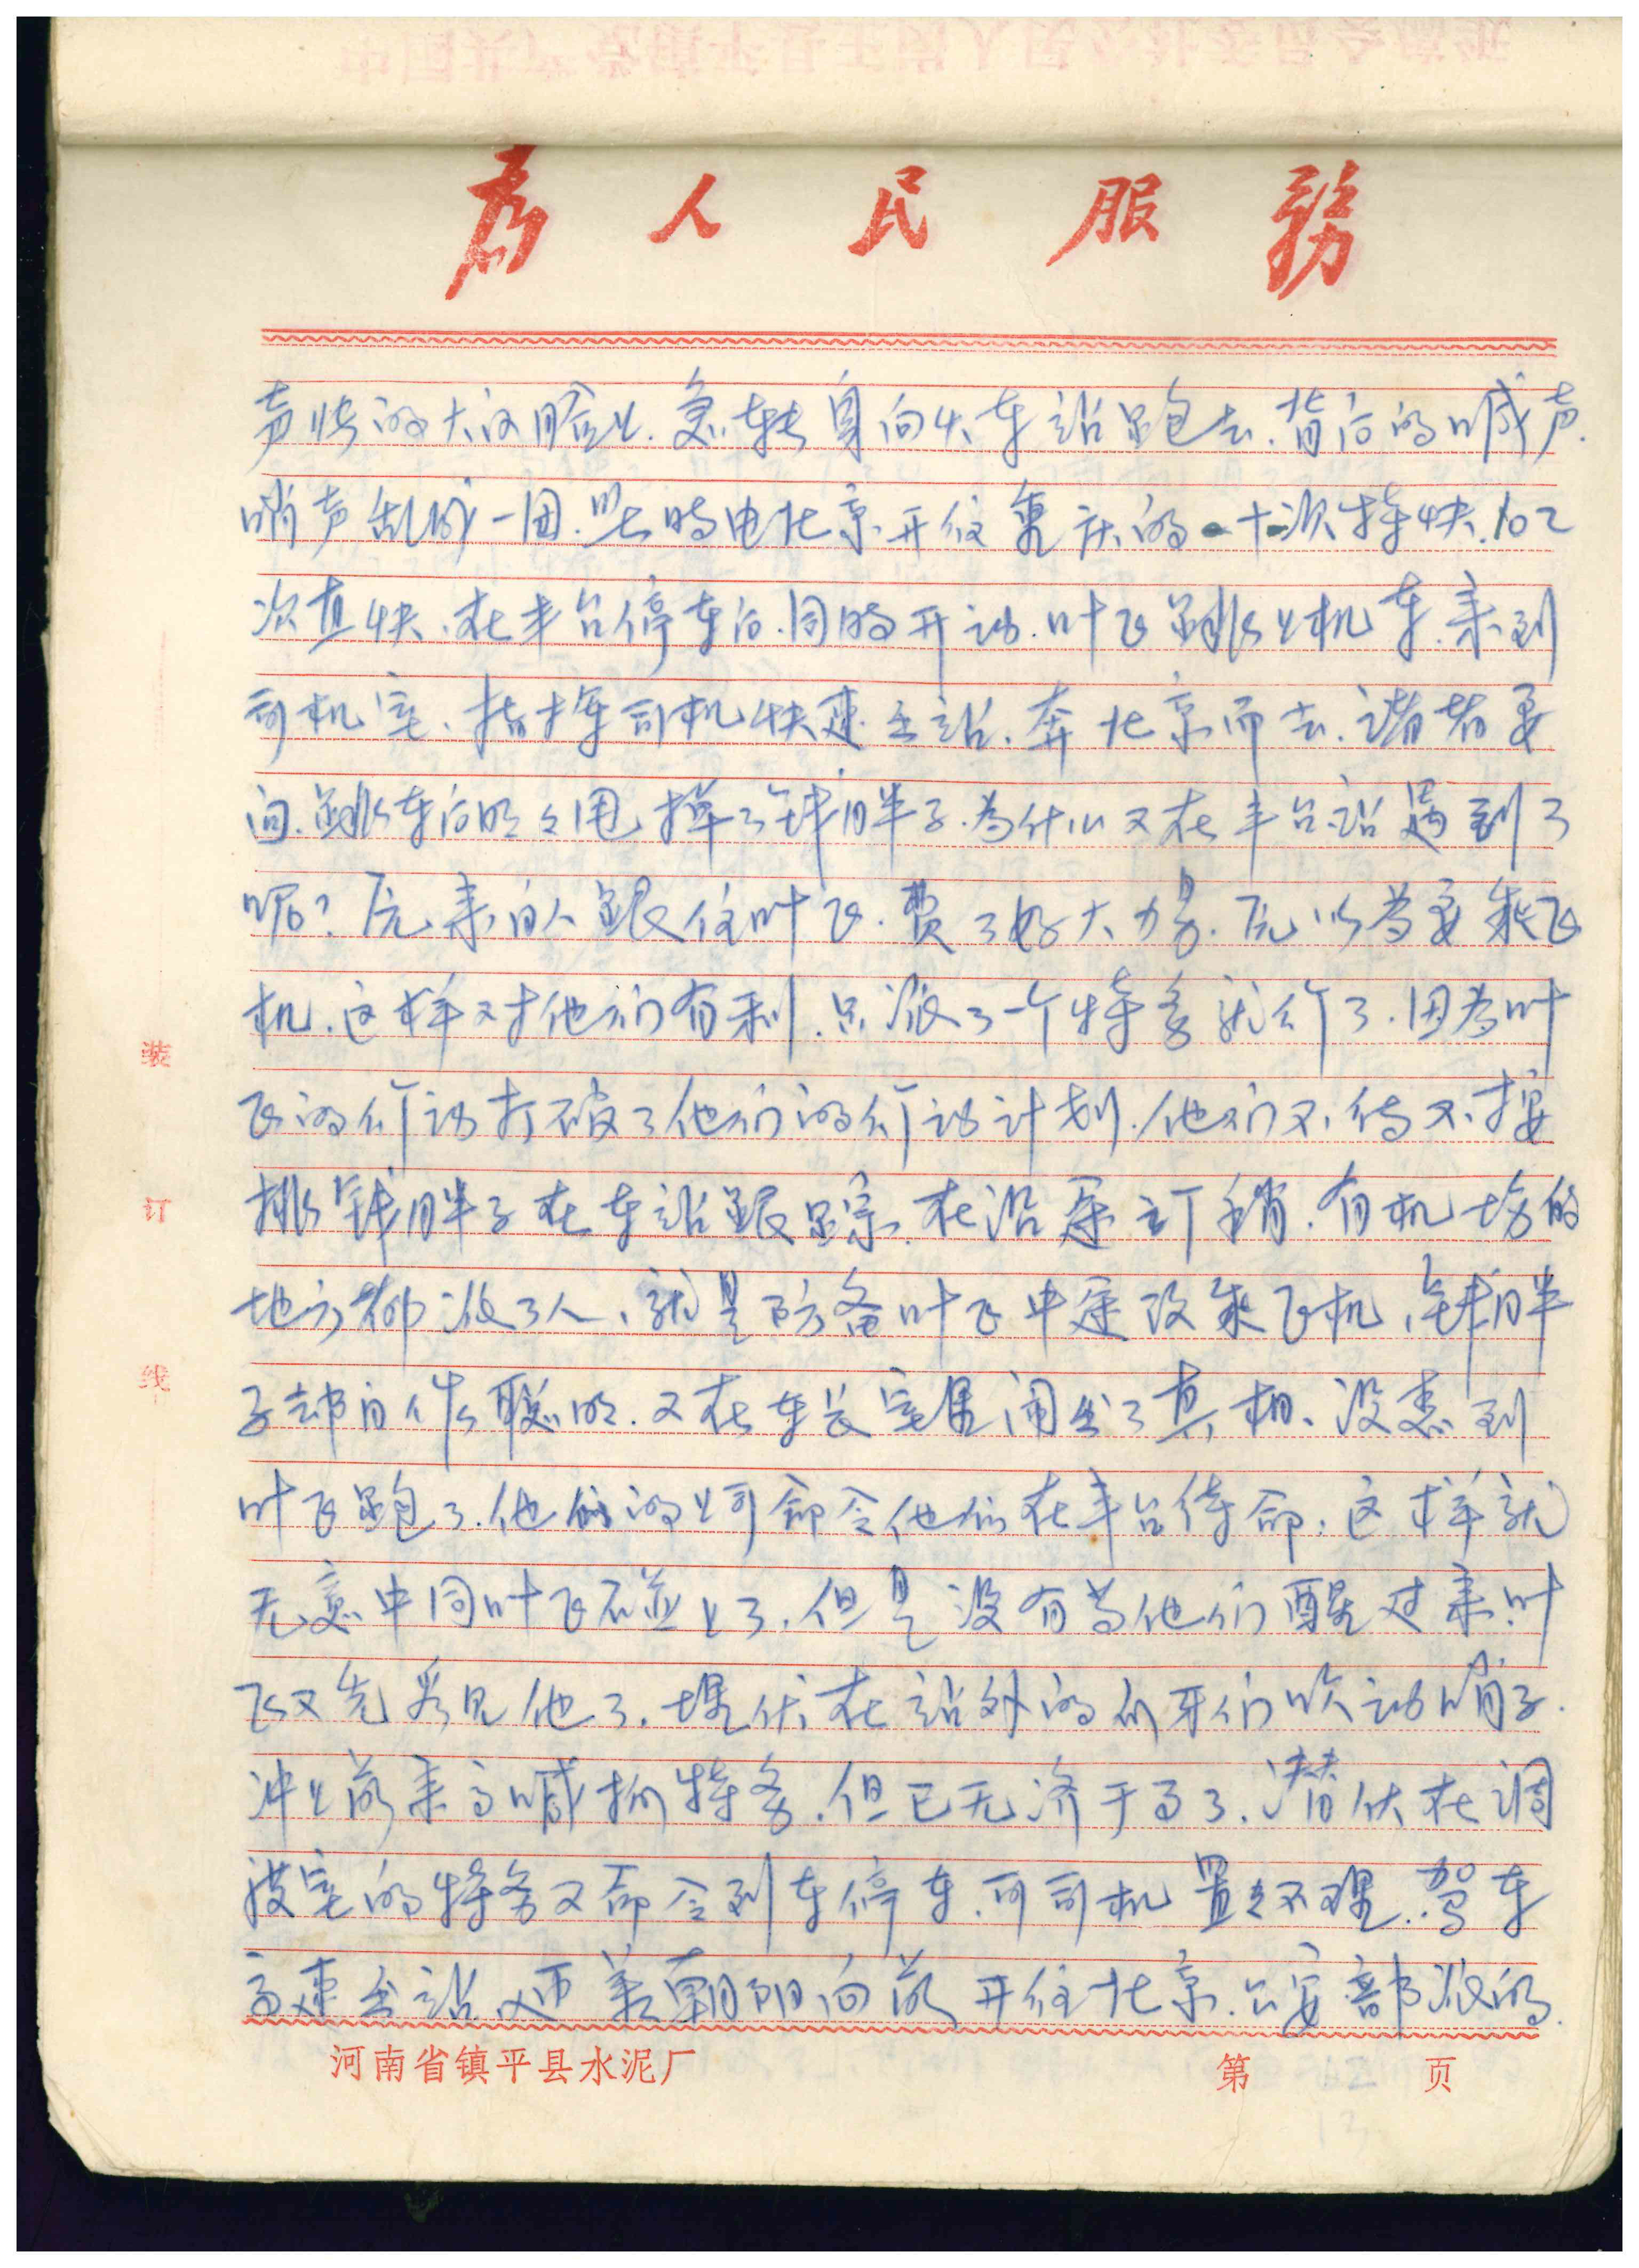 为人民服务
声快的大汉脸上.急转身向火车站跑去.背后的喊声.
哨声乱成一团.此时由北京开往重庆的一十次特快.102
次直快.在丰台停车后.同时开动.叶飞跳上机车.来到
司机室、指挥司机快速出站.奔北京而去.读者要
问.跳车后明明甩掉了矮胖子.为什么又在丰台站遇到了
呢?原来敌人跟住叶飞.费了好大力气.原以为要乘飞
机.这样又对他们有利.只派了一个特务就行了.因为叶
飞的行动打破了他们的行动计划.他们又不得不
安排矮胖子在车站跟踪.在沿途盯稍.有机场的
地方都派了人、就是防备叶飞中途改乘飞机、矮胖
子却自作聪明.又在车长室里闹出了真相、没想到
叶飞跑了.他们的上司命令他们在丰台待命.这样就
无意中同叶飞碰上了.但是没有等他们醒过来.叶
飞又先看见他了.埋伏在站外的爪牙们吹动哨子.
冲上前来高喊抓特务.但已无济于事了.潜伏在调
度室的特务又命令列车停车.可司机置之不理.驾车
高速出站.迎着朝阳向前开往北京.公安部派的.
装订线
河南省镇平县水泥厂 第 页